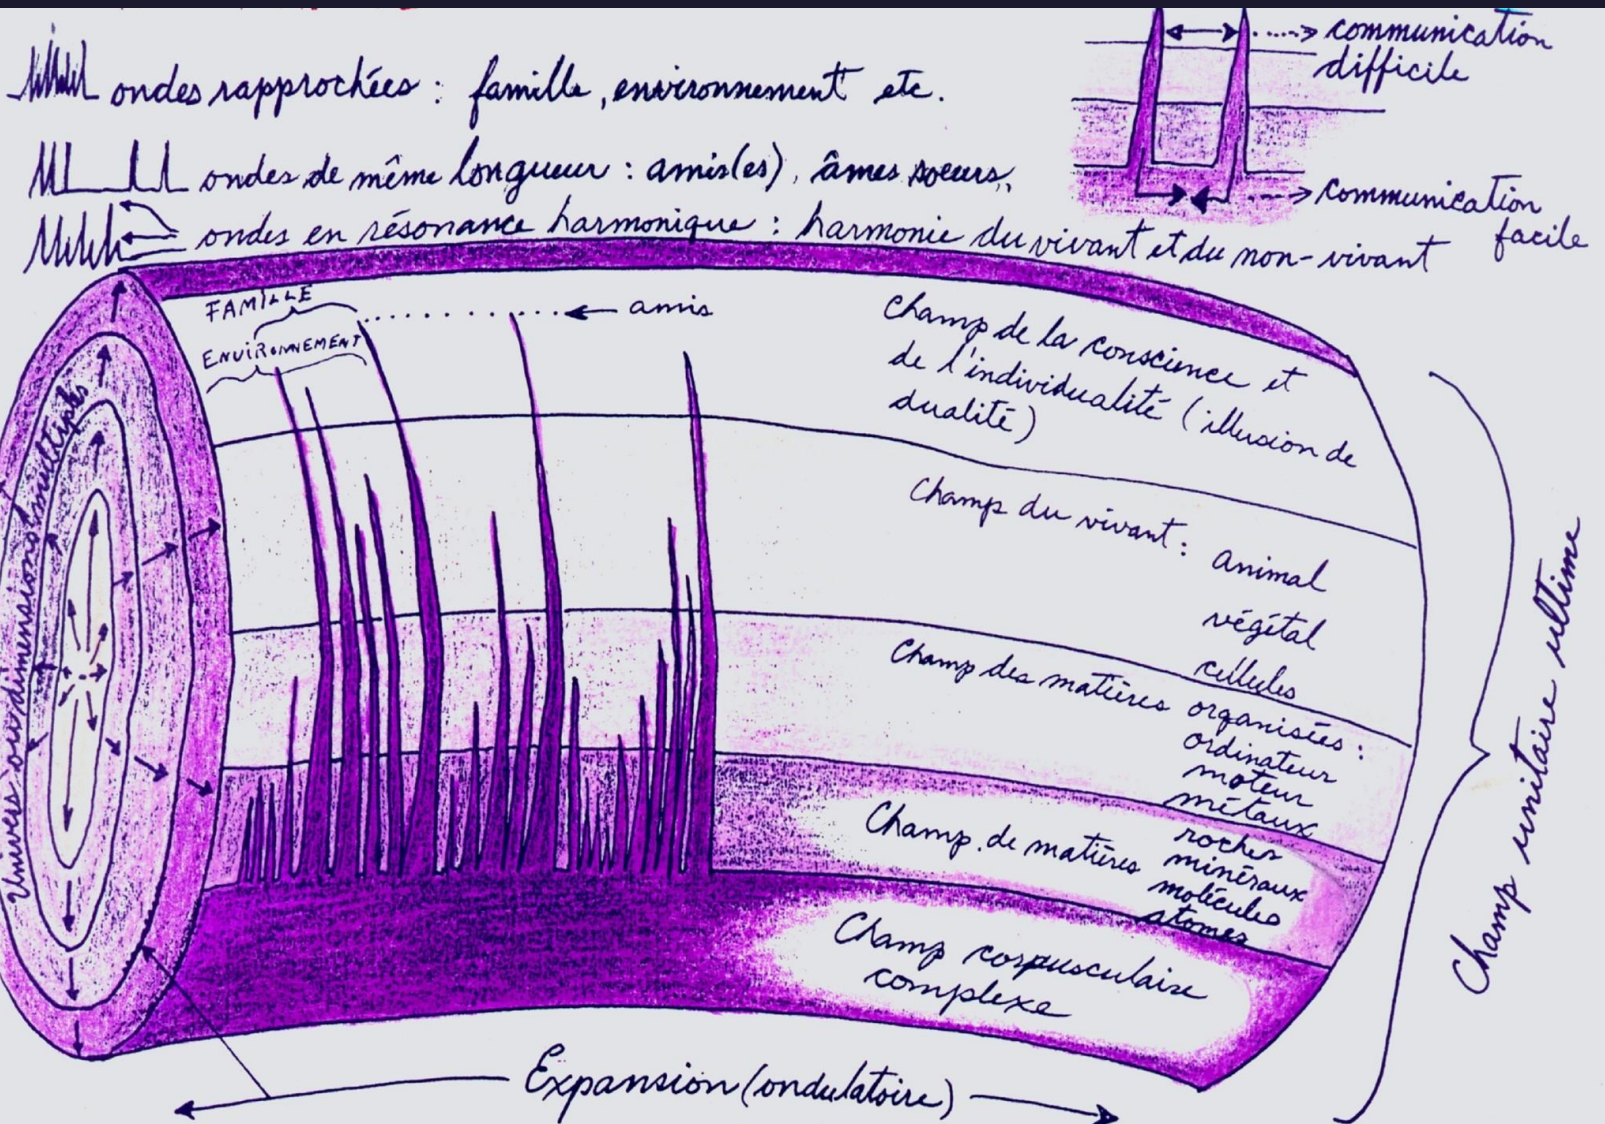 ondes rapprochées : famille, environnement etc.
ondes de même longueur : amis(es), âmes soeurs,
ondes en résonance harmonique : harmonie du vivant et du non-vivant
communication
difficile
communication
facile
FAMILLE
ENVIRONNEMENT
amis
Champ de la conscience et
de l'individualité (illusion de
dualité)
Champ du vivant :
animal
végétal
cellules
Champ des matières organisées :
ordinateur
moteur
métaux
Champ de matières
roches
minéraux
molécules
atomes
Champ corpusculaire
complexe
Univers ou dimensions multiples
Champ unitaire ultime
Expansion (ondulatoire)